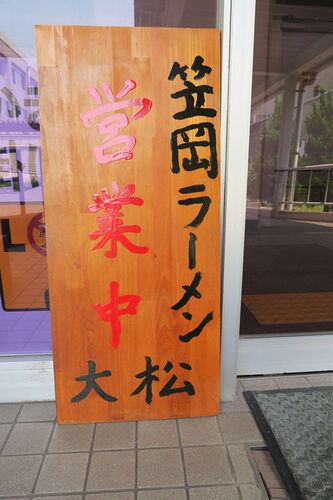 笠岡ラーメン
営業中
大松